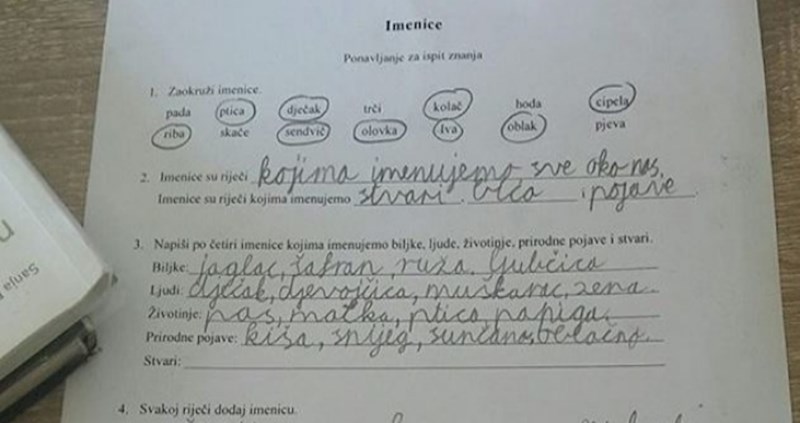 Imenice
Ponavljanje za ispit znanja
1. Zaokruži imenice.
pada ptica dječak trči kolač hoda cipela
riba skače sendvič olovka Iva oblak pjeva
2. Imenice su riječi kojima imenujemo sve oko nas.
Imenice su riječi kojima imenujemo stvari, bića i pojave.
3. Napiši po četiri imenice kojima imenujemo biljke, ljude, životinje, prirodne pojave i stvari.
Biljke: jaglac, šafran, ruža, ljubičica
Ljudi: dječak, djevojčica, muškarac, žena
Životinje: pas, mačka, ptica, papiga.
Prirodne pojave: kiša, snijeg, sunčano, oblačno.
Stvari:
4. Svakoj riječi dodaj imenicu.
Sanja